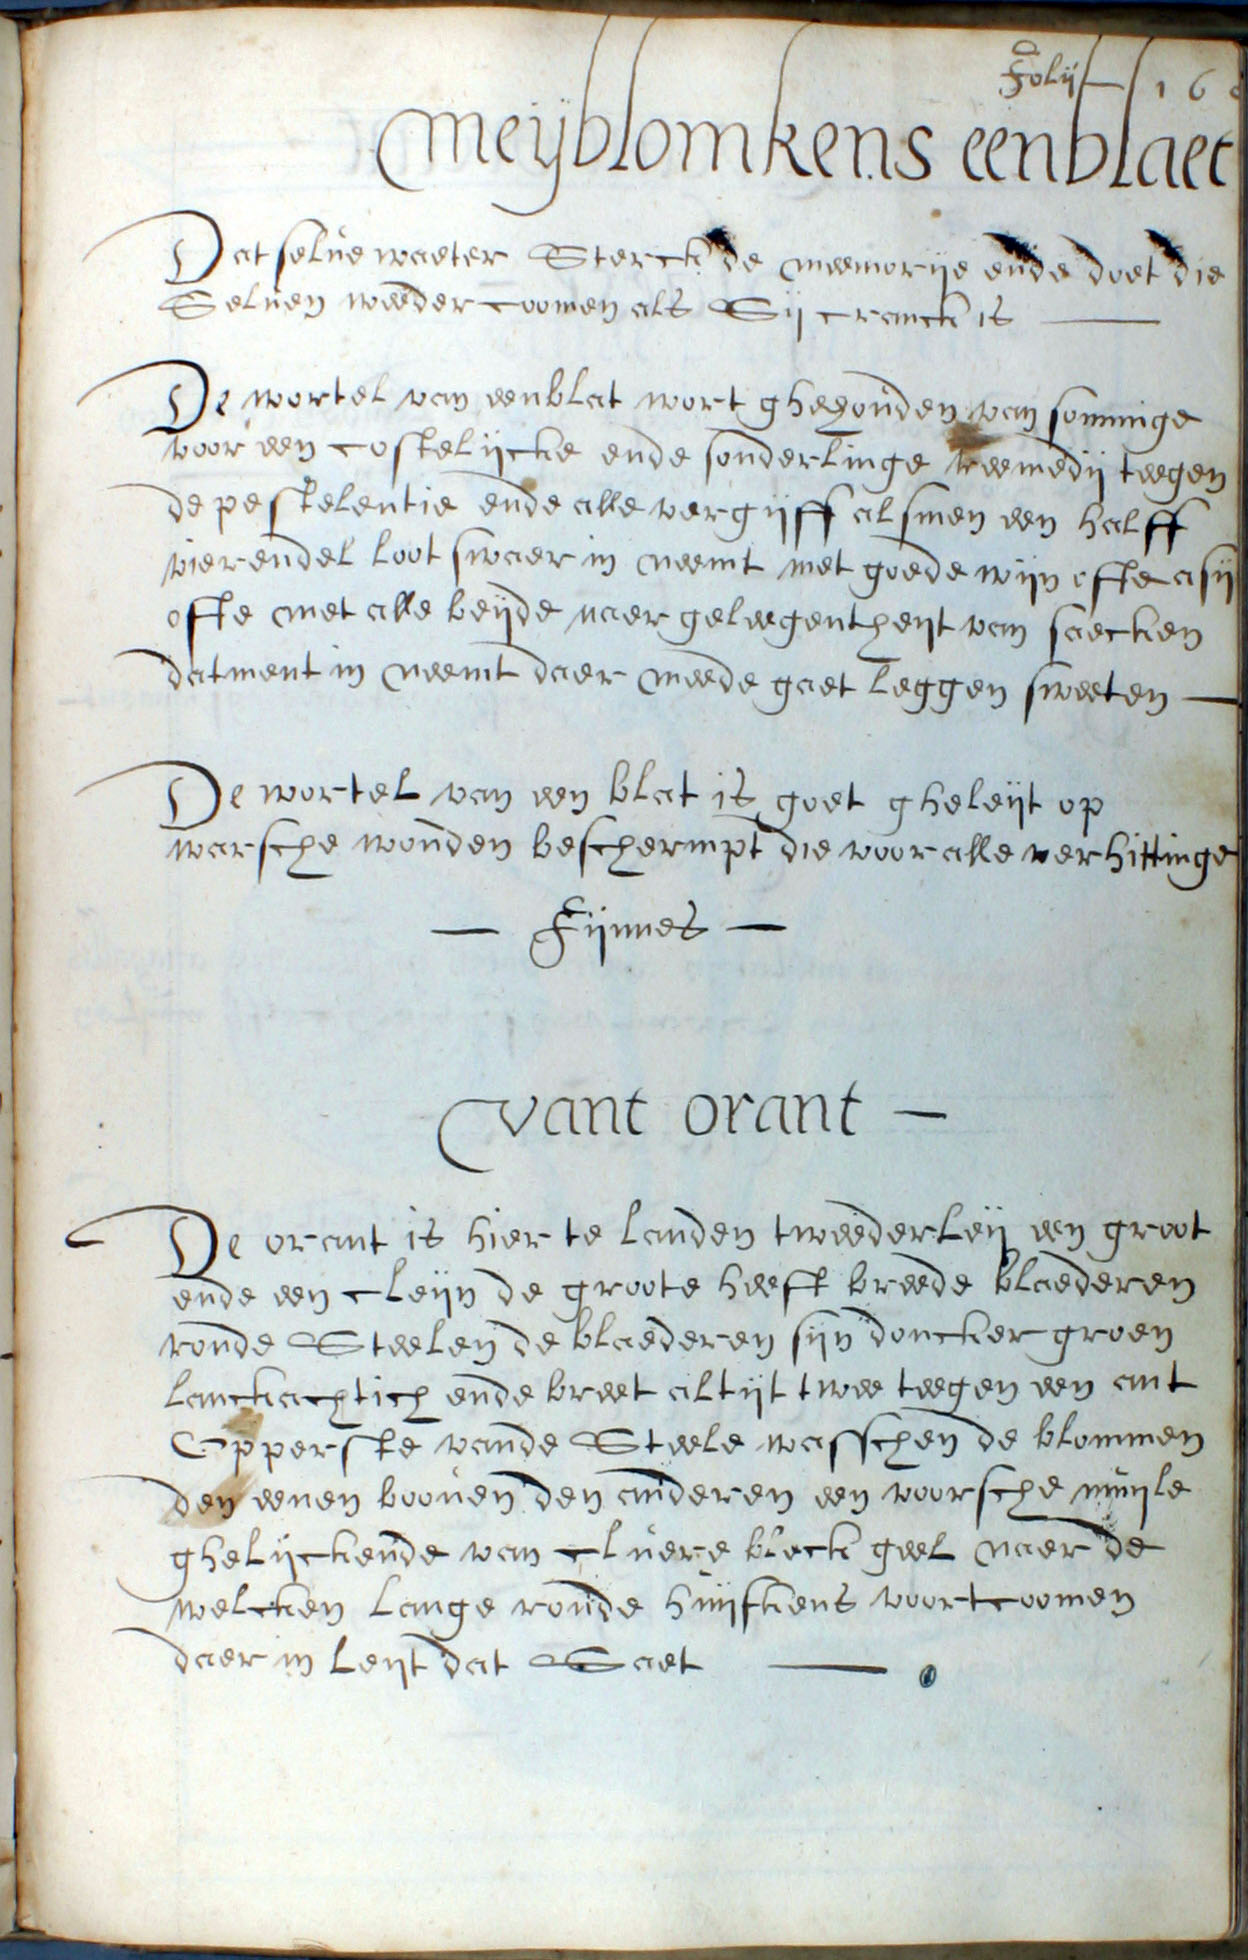 Folij — 16
Meijblomkens eenblaet
Dat selue waeter Sterckt de meemorije ende doet die
Seluen weeder coomen als Sij cranck is —
De wortel van eenblat wort ghehouden van sommige
voor een costelijcke ende sonderlinge reemedij teegen
de pestelentie ende alle vergijff alsmen een halff
vierendel loot swaer in neemt met goede wijn ofte asij
ofte met alle beijde naer geleegentheijt van saecken
datment in neemt daer meede gaet leggen sweeten —
De wortel van een blat is goet gheleijt op
varsche wonden beschermpt die voor alle verhittinge
— Fijnnes —
Vant orant —
De orant is hier te landen tweederleij een groot
ende een cleijn de groote heeft breede blaederen
ronde Steelen de blaederen sijn doncker groen
lanckachtich ende breet altijt twee teegen een ant
Opperste vande Steele wasschen de blommen
den eenen boouen den anderen een voorsche muijle
ghelijckende van cluere bleck geel naer de
welcken lange ronde huijskens voortcoomen
daer in leijt dat Saet —